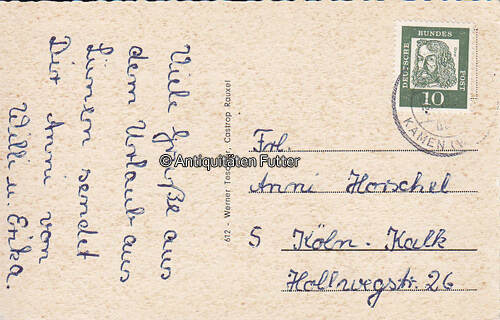 Viele Grüße aus
dem Urlaub aus
Lünern sendet
Dir Anni von
Willi u. Erika.
612 - Werner Tesc er, Castrop Rauxel
© Antiquitäten Futter
DEUTSCHE BUNDES POST
10
KAMEN (W
Frl.
Anni Horschel
5 Köln-Kalk
Hollwegstr. 26